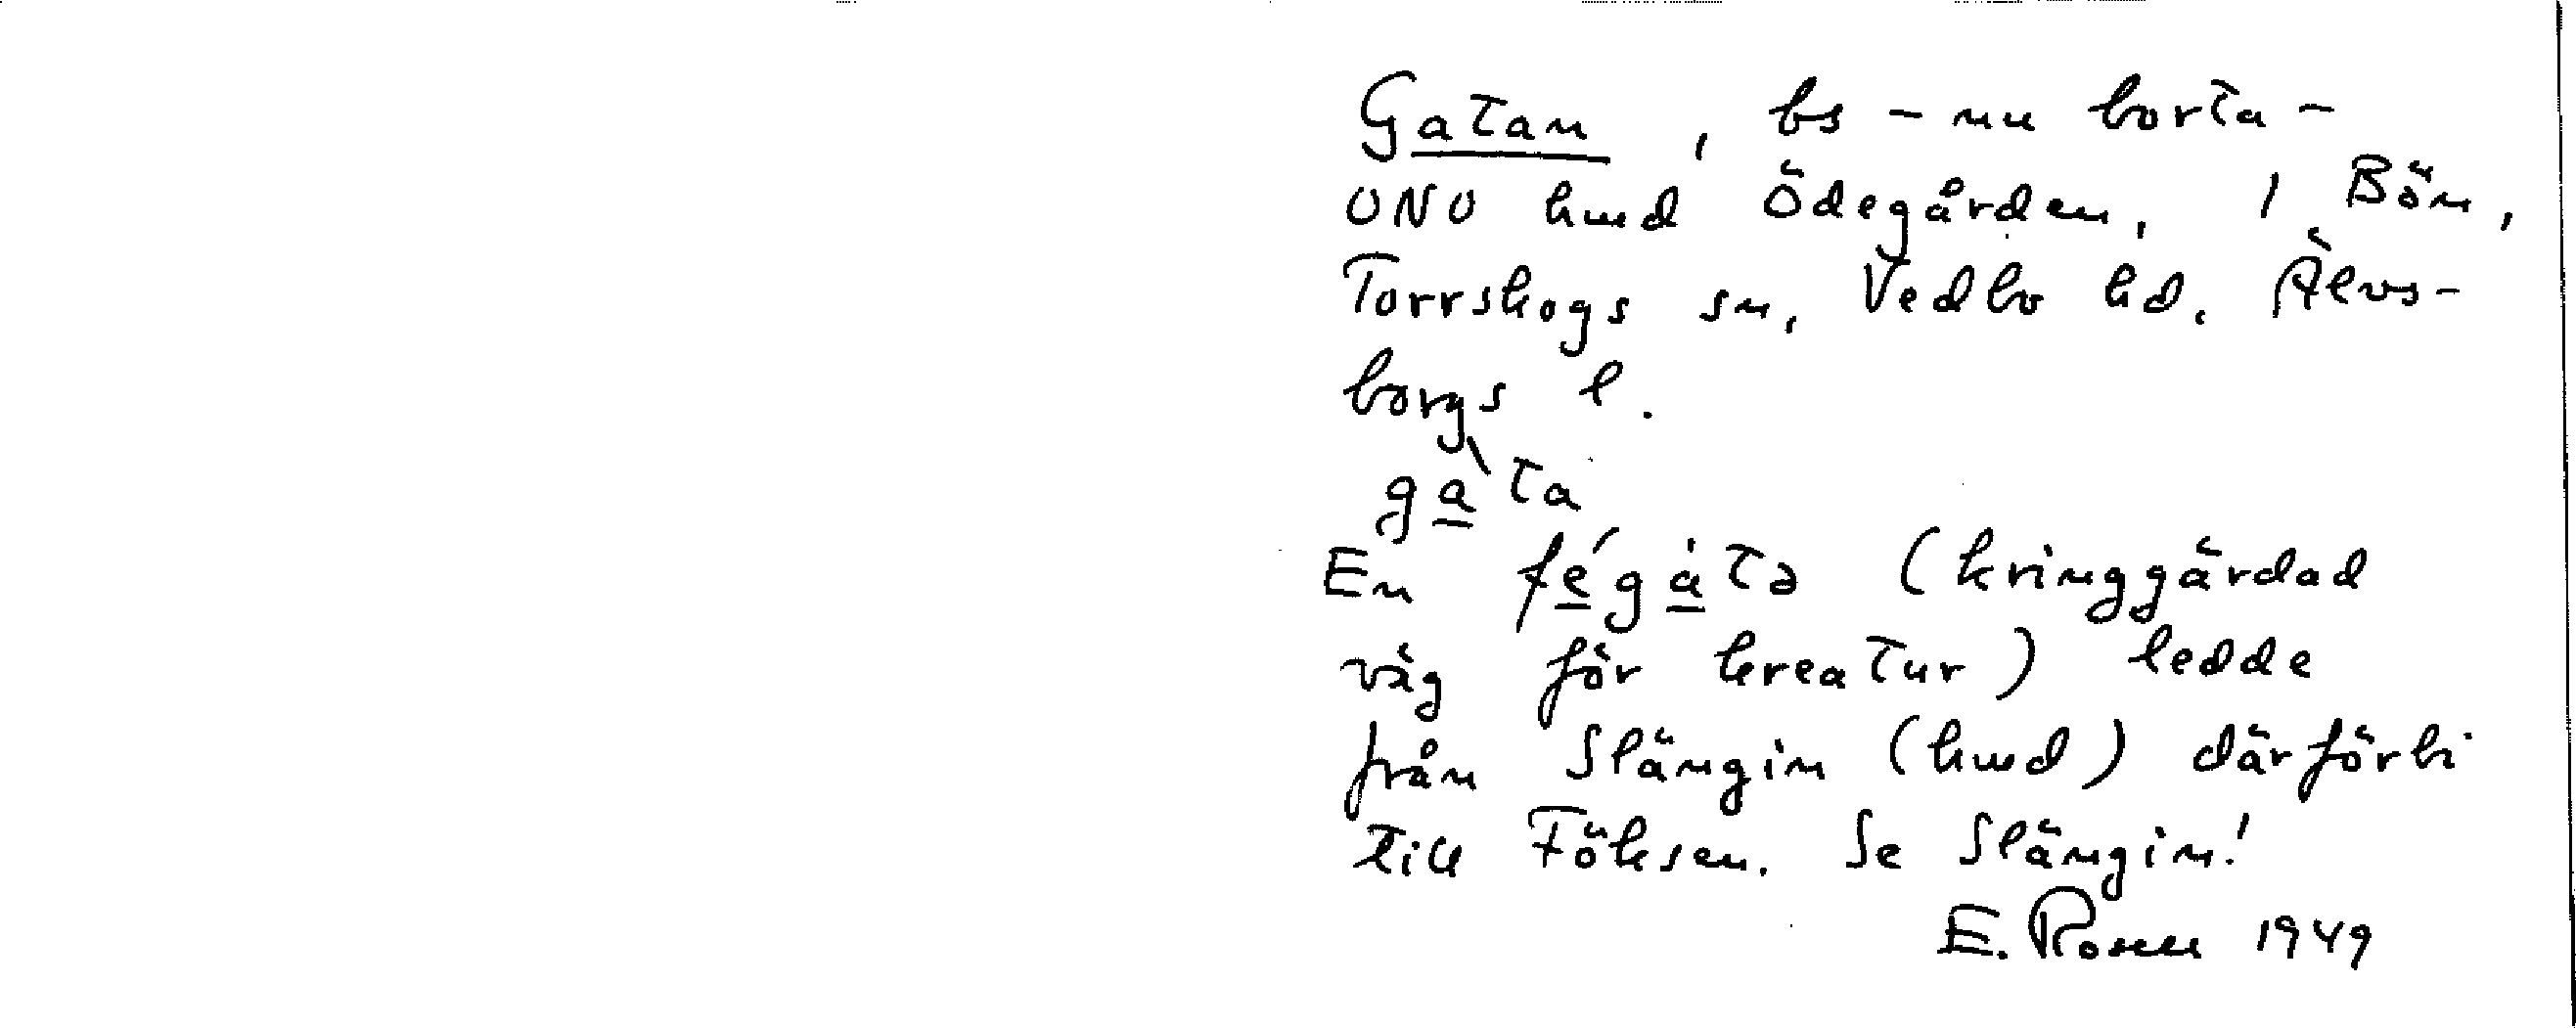 Gatan, bs - nu borta -
ONO hmd Ödegården, 1 Bön,
Torrskogs sn, Vedbo hd. Älvs-
borgs l.
gà̱ta
En fé̱gà̱tə (kringgärdad
väg för kreatur) ledde
från Slängin (hmd) därförbi
tillFöksen. Se Slängin!
E. Rosen 1949